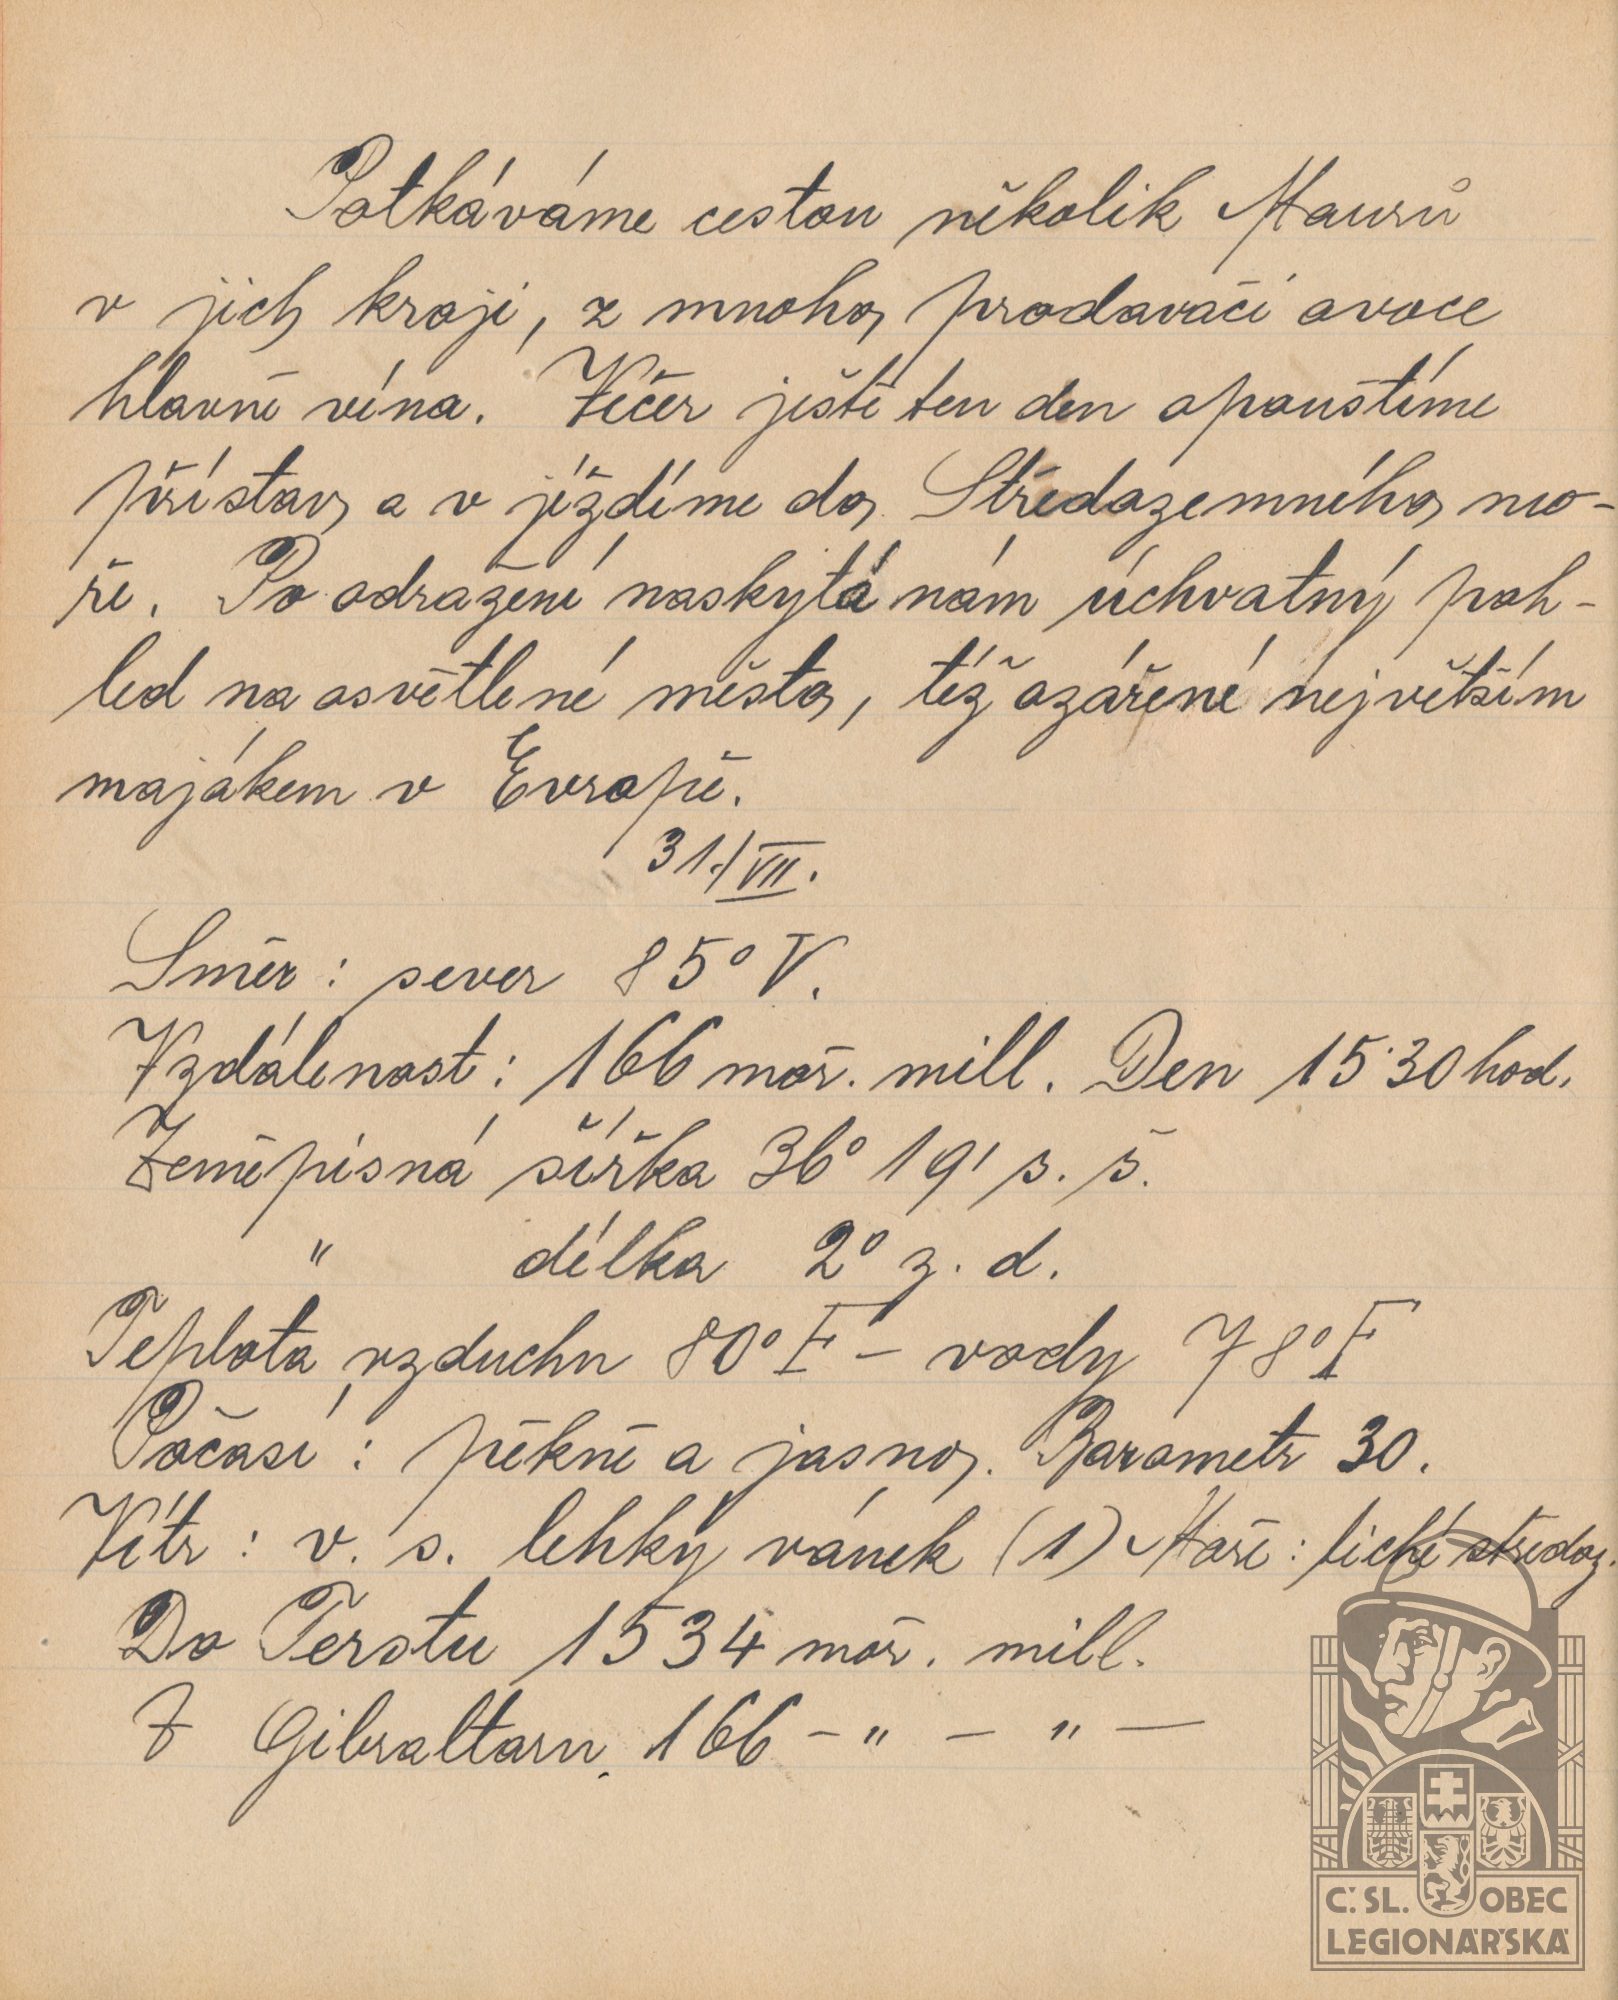 Potkáváme cestou několik Maurů
v jich kraji, z mnoho prodavači ovoce
hlavně vína. Večer ještě ten den opouštíme
přístav a v jéždíme do Středozemného mo-
ře. Po odražení naskytá nám úchvatný poh-
led na osvětlené město, též ozářené největším
majákem v Evropě.
31./VII.
Směr: sever 85° V.
Vzdálenost: 166 moř. mill. Den 15˙30 hod.
Zeměpisná šířka 36° 19' s. š.
" délka 2° z. d.
Teplota vzduchu 80° F – vody 78° F
Počasí: pěkně a jasno. Barometr 30.
Vítr: v. s. lehký vánek (1) Moře: tiché středoz.
Do Terstu 1534 moř. mill.
Z Gibraltaru 166 – " – " –
Č. SL. OBEC
LEGIONÁŘSKÁ